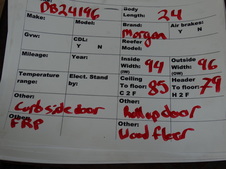 DB24196 Body Length: 24
Make: Model: Brand: Morgan Air brakes? Y N
Gvw: CDL: Y N Reefer Model:
Mileage: Year: Inside Width: 94 (IW) Outside Width: 96 (OW)
Temperature range: Elect. Stand by: Ceiling To floor: 85 C 2 F Header To floor: 79 H 2 F
Other: Curb side door Other: Rollup door
Other: FRP Other: Wood floor